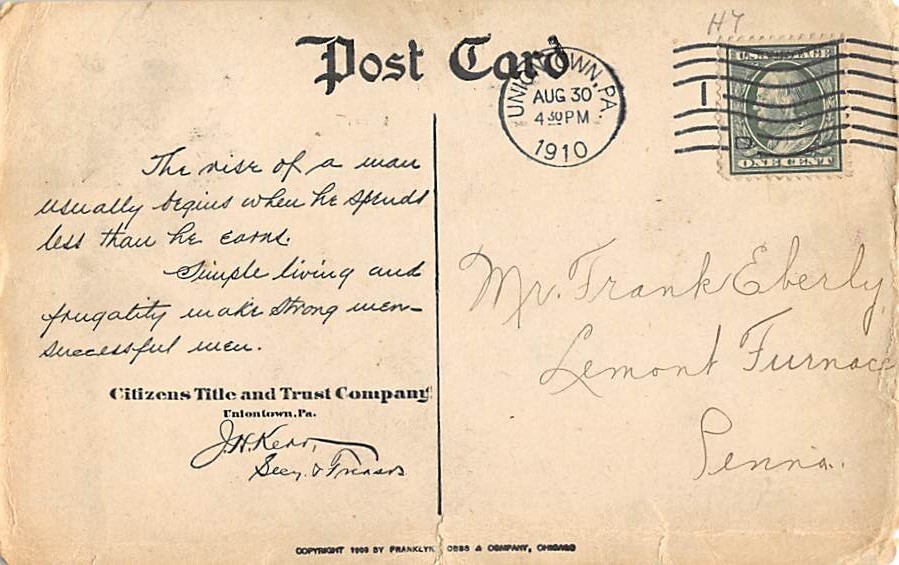 H7
Post Card
UNIONTOWN, PA.
AUG 30
4 30 PM
1910
1
U.S. POSTAGE
ONE CENT
The rise of a man
usually begins when he spends
less than he earns.
Simple living and
frugality make strong men—
successful men.
Citizens Title and Trust Company
Uniontown, Pa.
J.H. Kerr,
Secy. & Treas
Mr. Frank Eberly,
Lemont Furnace
Penna.
COPYRIGHT 1909 BY FRANKLYN & COMPANY, CHICAGO